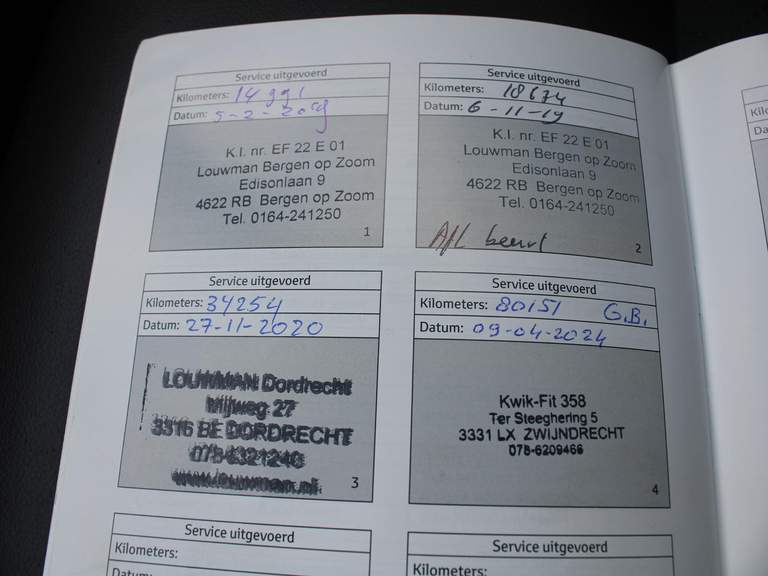 Service uitgevoerd
Kilometers: 14991
Datum: 5-2-2019
K.I. nr. EF 22 E 01
Louwman Bergen op Zoom
Edisonlaan 9
4622 RB Bergen op Zoom
Tel. 0164-241250
1
Service uitgevoerd
Kilometers: 18674
Datum: 6-11-19
K.I. nr. EF 22 E 01
Louwman Bergen op Zoom
Edisonlaan 9
4622 RB Bergen op Zoom
Tel. 0164-241250
Afl beurt
2
Service uitgevoerd
Kilometers: 34254
Datum: 27-11-2020
LOUWMAN Dordrecht
Mijlweg 27
3316 BE DORDRECHT
078-6321240
www.louwman.nl
3
Service uitgevoerd
Kilometers: 80151 G.B.
Datum: 09-04-2024
Kwik-Fit 358
Ter Steeghering 5
3331 LX ZWIJNDRECHT
078-6209466
4
Service uitgevoerd
Kilometers:
Service uitgevoerd
Kilometers: